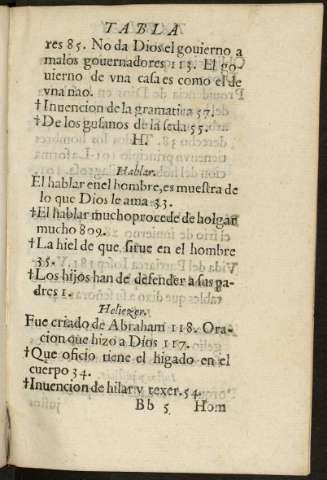 TABLA
res 85. No da Dios el gouierno a
malos gouernadores 113. El go
uierno de vna casa es como el de
vna nao.
†Inuencion de la gramatica 57.
†De los gusanos de la seda 55.
H.
Hablar.
El hablar en el hombre, es muestra de
lo que Dios le ama 33.
†El hablar mucho procede de holgar
mucho 809.
†La hiel de que sirue en el hombre
35.
†Los hijos han de defender a sus pa-
dres 1.
Heliezer.
Fue criado de Abraham 118. Ora-
cion que hizo a Dios 117.
†Que oficio tiene el higado en el
cuerpo 34.
†Inuencion de hilar y texer. 54.
Bb 5 Hom